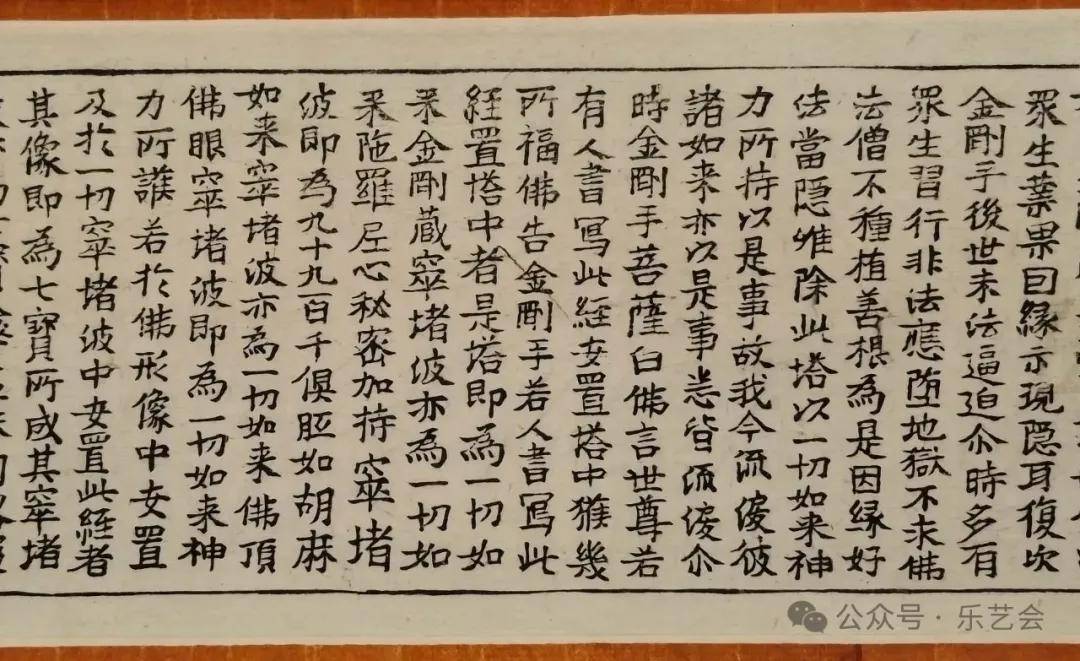 眾生葉果曰緣示現隱耳復次
金剛手後世末法逼迫尒時多有
眾生習行非法應堕地獄不求佛
法僧不種植善根為是因緣好
法當隱唯除此塔以一切如来神
力所持以是事故我今流淚彼
諸如来亦以是事悉皆流淚尒
時金剛手菩薩白佛言世尊若
有人書寫此經安置塔中獲幾
所福佛告金剛手若人書寫此
經置塔中者是塔即為一切如
来金剛藏窣堵波亦為一切如
来陁羅尼心秘密加持窣堵
波即為九十九百千俱胝如胡麻
如来窣堵波亦為一切如来佛頂
佛眼窣堵波即為一切如来神
力所護若於佛形像中安置
及於一切窣堵波中安置此經者
其像即為七寶所成其窣堵
公众号·乐艺会